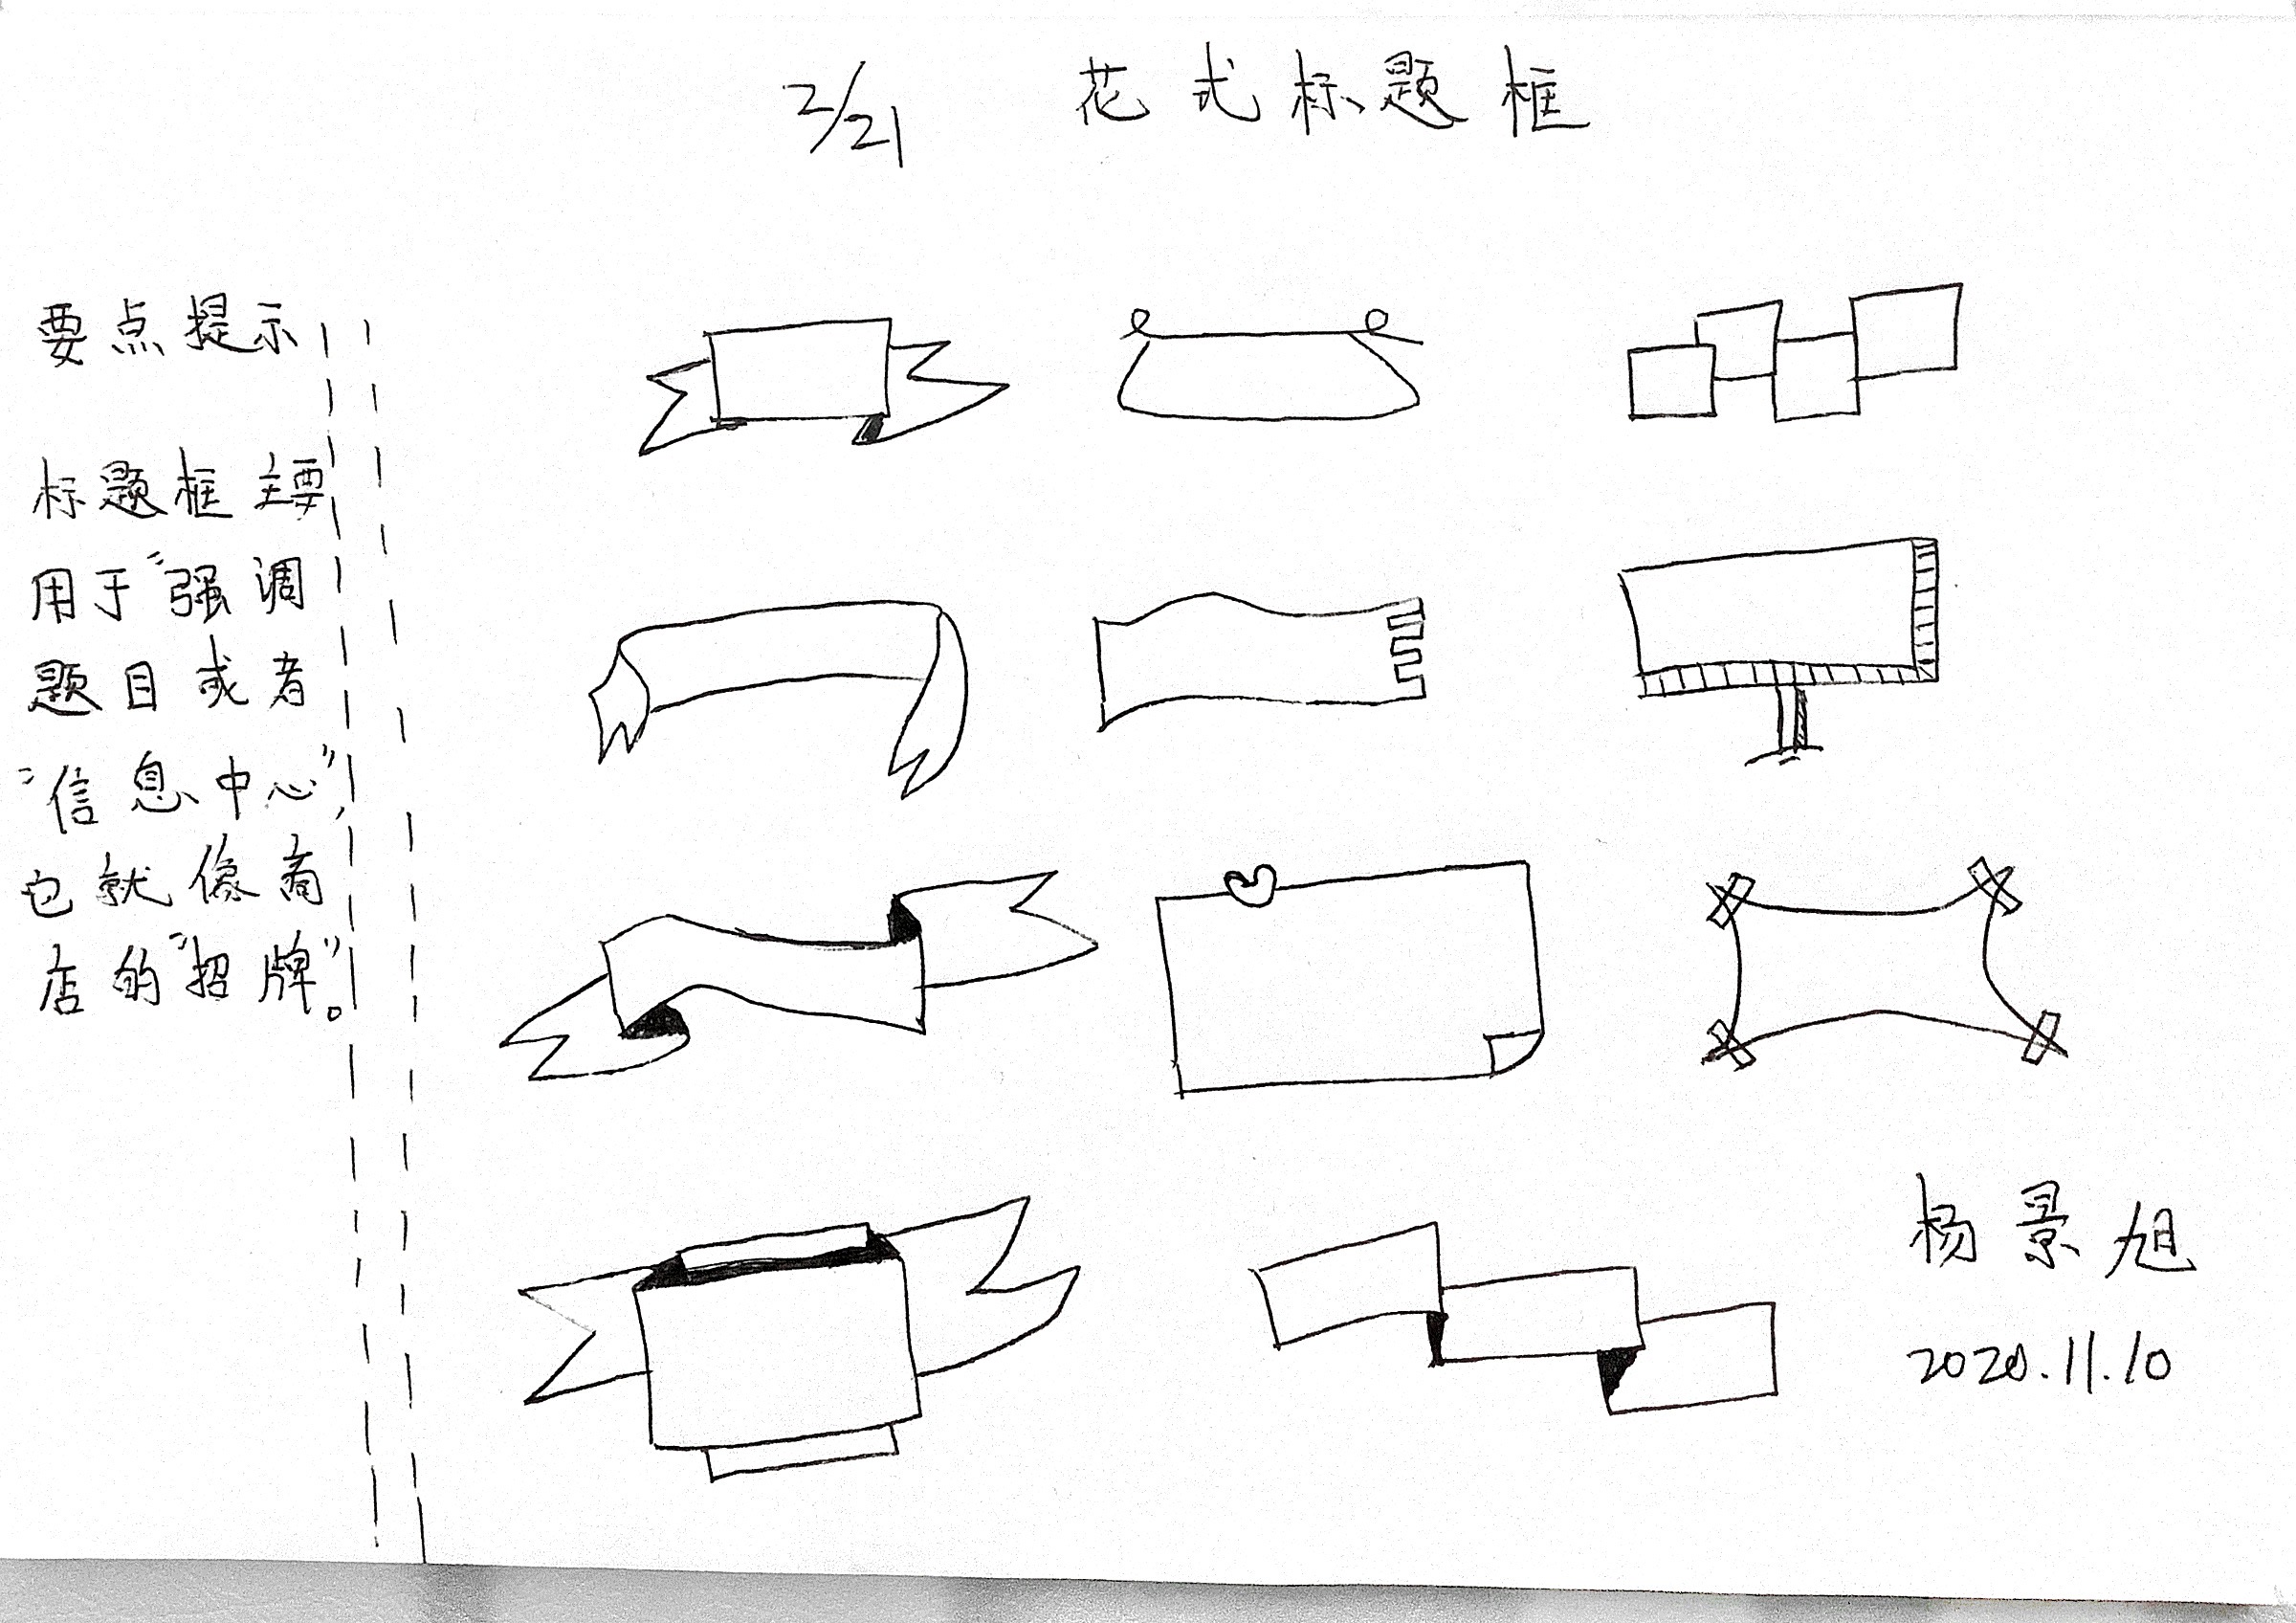 2/21 花式标题框
要点提示
标题框主要
用于“强调
题目或者
“信息中心”,
也就像商
店的“招牌”。
杨景旭
2020.11.10